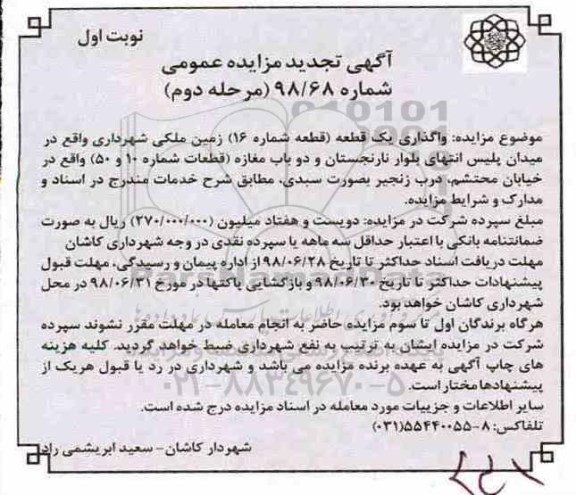 نوبت اول
آگهی تجدید مزایده عمومی
شماره ۹۸/۶۸ (مرحله دوم)
موضوع مزایده: واگذاری یک قطعه (قطعه شماره ۱۶) زمین ملکی شهرداری واقع در
میدان پلیس انتهای بلوار نارنجستان و دو باب مغازه (قطعات شماره ۱۰ و ۵۰) واقع در
خیابان محتشم، درب زنجیر بصورت سبدی، مطابق شرح خدمات مندرج در اسناد و
مدارک و شرایط مزایده.
مبلغ سپرده شرکت در مزایده: دویست و هفتاد میلیون (۲۷۰/۰۰۰/۰۰۰) ریال به صورت
ضمانتنامه بانکی با اعتبار حداقل سه ماهه یا سپرده نقدی در وجه شهرداری کاشان
مهلت دریافت اسناد حداکثر تا تاریخ ۹۸/۰۶/۲۸ از اداره پیمان و رسیدگی، مهلت قبول
پیشنهادات حداکثر تا تاریخ ۹۸/۰۶/۳۰ و بازگشایی پاکتها در مورخ ۹۸/۰۶/۳۱ در محل
شهرداری کاشان خواهد بود.
هرگاه برندگان اول تا سوم مزایده حاضر به انجام معامله در مهلت مقرر نشوند سپرده
شرکت در مزایده ایشان به ترتیب به نفع شهرداری ضبط خواهد گردید. کلیه هزینه
های چاپ آگهی به عهده برنده مزایده می باشد و شهرداری در رد یا قبول هر یک از
پیشنهادها مختار است.
سایر اطلاعات و جزییات مورد معامله در اسناد مزایده درج شده است.
تلفاکس: ۸-۵۵۴۴۰۰۵۵(۰۳۱)
شهردار کاشان - سعید ابریشمی راد
ParsNamadData
۰۲۱-۸۸۳۴۹۶۷۰-۵